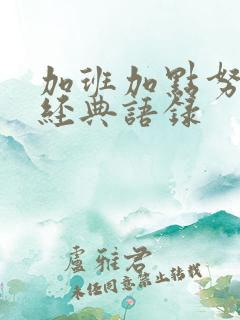 加班加點努
經典語錄
盧雅君
未經同意禁止轉載